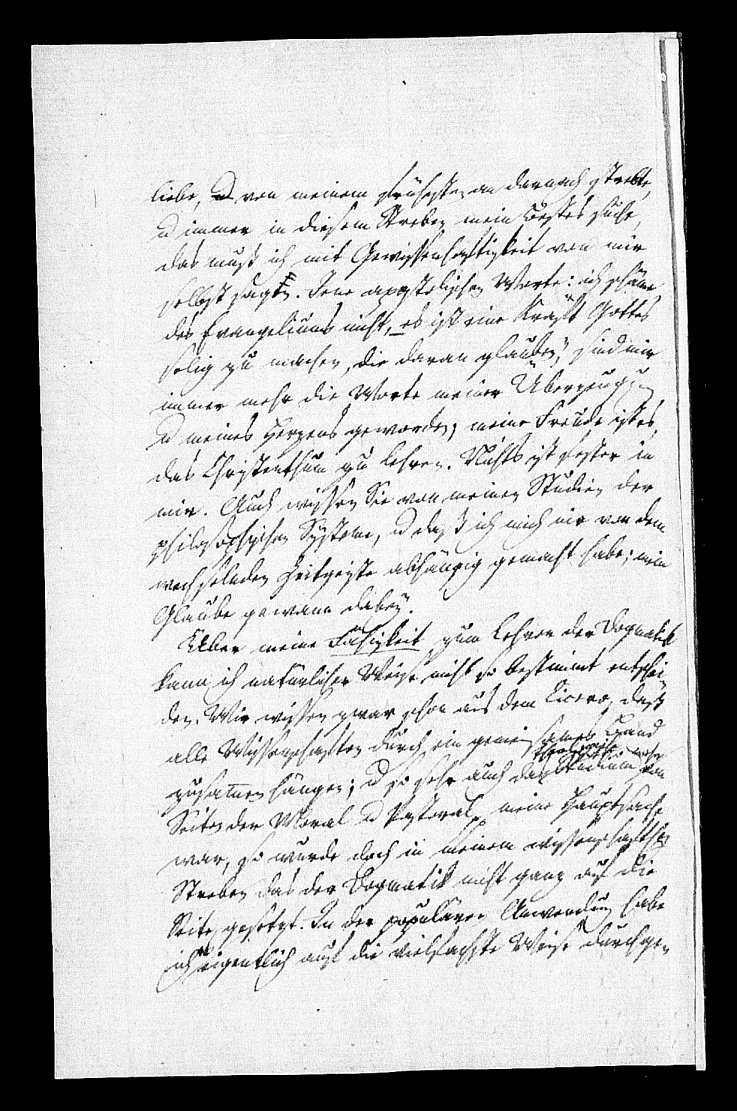 liebe, u. von meinem frühesten an darnach strebte,
u immer in diesem Streben mein Bestes suche,
das muß ich mit Gewissenhaftigkeit von mir
selbst sagen. Jene apostolischen Worte: ich schäme
des Evangeliums nicht, es ist eine Kraft Gottes
selig zu machen, die daran glauben, sind mir
immer mehr die Worte meiner Überzeugung
u meines Herzens geworden; meine Freude ist es,
das Christenthum zu lehren. Nichts ist fester in
mir. Auch wissen Sie von meinen Studien der
philosophischen Systeme, u daß ich mich nie von dem
wechselnden Zeitgeiste abhängig gemacht habe; mein
Glaube gewann dabey.
Ueber meine Fähigkeit zum Lehren der Dogmatik
kann ich natürlicher Weise nicht so bestimmt entschei-
den. Wir wissen zwar schon aus dem Cicero, daß
alle Wissenschaften durch ein gemeinsames Band
zusamen hängen; u so sehr auch das Studium von
Seiten der Moral u Pastoral meine Hauptsache
war, so wurde doch in meinem wissenschaftlichen
Streben das der Dogmatik nicht ganz auf die
Seite gesetzt. In der populären Anwendung habe
ich sie eigentlich auf die vielfachste Weise durchge-